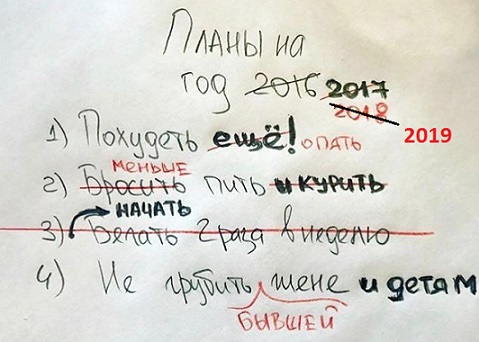 Планы на
год 2016 2017
2018 2019
1) Похудеть ещё! опать
меньше
2) Бросить пить и курить
начать
3) Бегать 2 раза в неделю
4) Не грубить жене и детям
бывшей